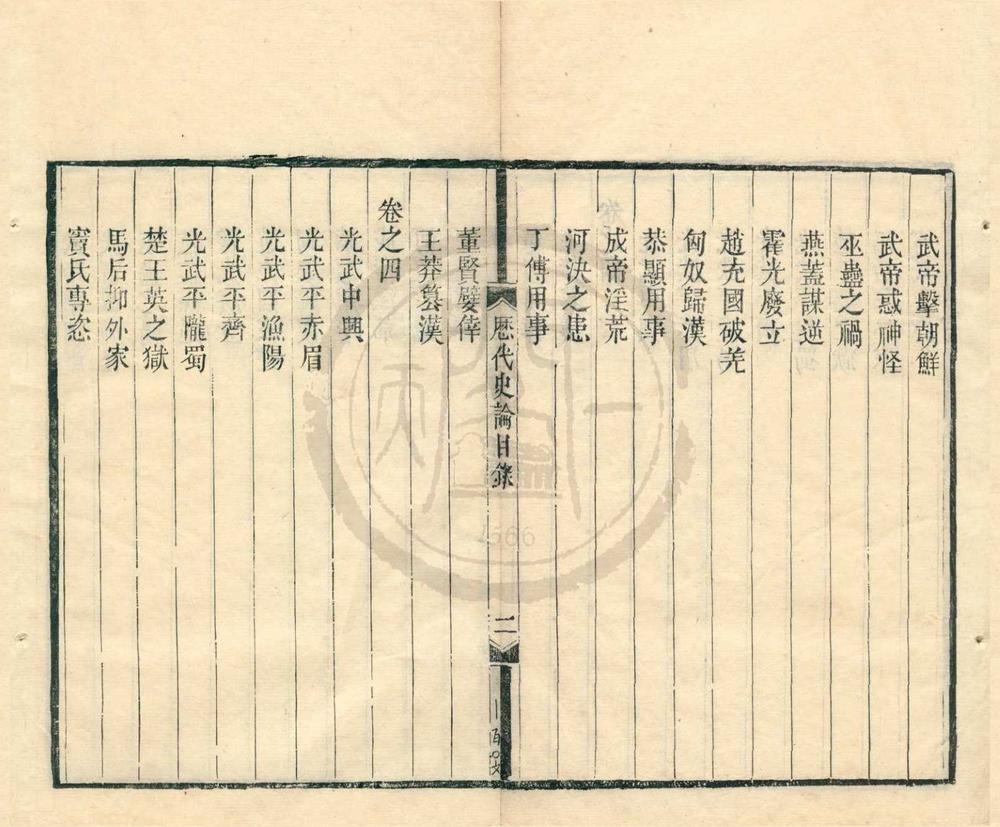 武帝擊朝鮮
武帝惑神怪
巫蠱之禍
燕蓋謀逆
霍光廢立
趙充國破羌
匈奴歸漢
恭顯用事
成帝淫荒
河決之患
丁傅用事
歷代史論目錄
二
董賢嬖倖
王莽篡漢
卷之四
光武中興
光武平赤眉
光武平漁陽
光武平齊
光武平隴蜀
楚王英之獄
馬后抑外家
竇氏專恣
1566